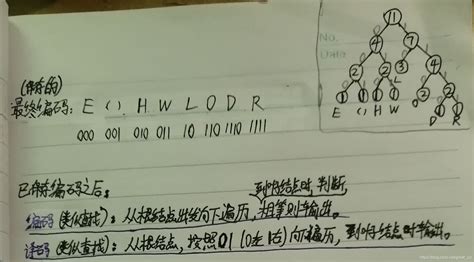 No.
Data
11
4 7
2 2 3 4
L
1 1 1 1 2 2
E ( ) H W O 1 1
D R
(存的)
最终编码: E ( ) H W L O D R
000 001 010 011 10 110 1110 1111
已存编码之后。
到叶结点时,判断,
编码(类似查找): 从根结点出发向下遍历,相等则输出。
译码(类似查找): 从根结点,按照01(0左1右)向下遍历,到叶结点时输出。